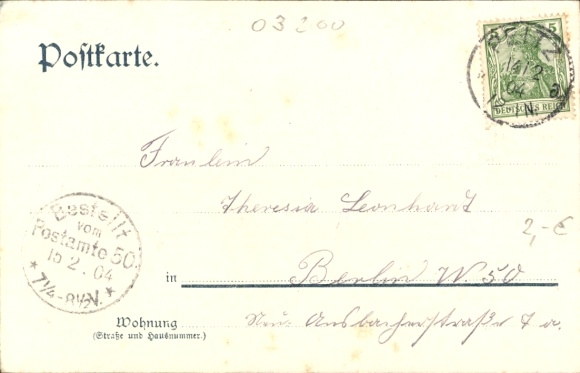 03200
Postkarte.
5
PEITZ
14 12
04
DEUTSCHES REICH
Fräulein
Theresia Leonhard
2,-€
Bestellt
vom
Postamte 50
15 2. 04
* 7¼-8½V. *
in Berlin W. 50
Wohnung
(Straße und Hausnummer.)
Neu: Ansbacherstraße 7 a.